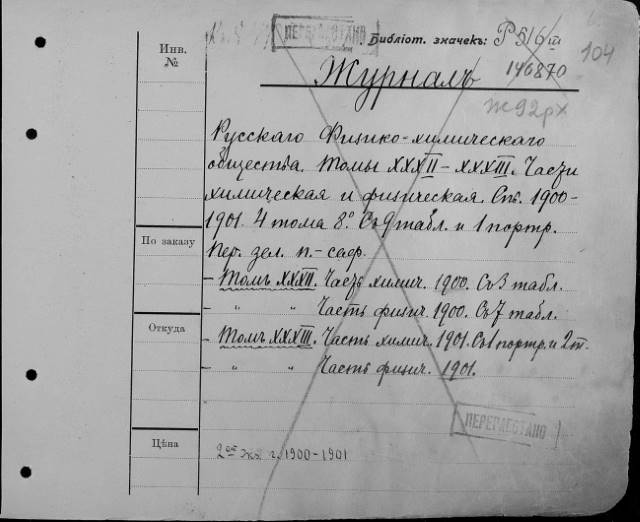 ПЕРЕРАБОТАНО
Библіот. значекъ: Р 5/6 III
104
Инв.
№
Журналъ
146870
Ж92рх
Русскаго Физико-химическаго
общества. Томы XXXII–XXXIII. Части
химическая и физическая. Спб. 1900-
1901. 4 тома 8°. Съ 9 табл. и 1 портр.
По заказу
Пер. зел. п.-саф.
– Томъ XXXII. Часть химич. 1900. Съ 3 табл.
– " " Часть физич. 1900. Съ 7 табл.
Откуда
– Томъ XXXIII. Часть химич. 1901. Съ 1 портр. и 2 т.
– " " Часть физич. 1901.
ПЕРЕРАБОТАНО
Цѣна
2ой экз. г. 1900-1901